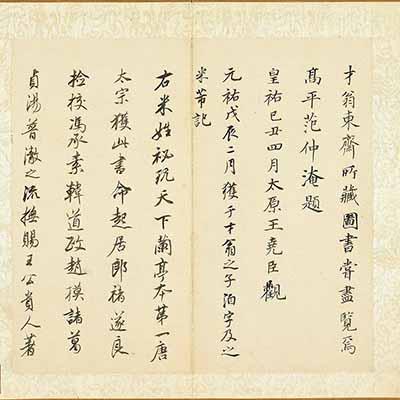 才翁東齋所藏圖書嘗盡覽焉
高平范仲淹題
皇祐己丑四月太原王堯臣觀
元祐戊辰二月獲于才翁之子洎字及之
米芾記
右米姓祕玩天下蘭亭本第一唐
太宗獲此書命起居郎褚遂良
撿校馮承素韓道政趙摸諸葛
貞湯普澈之流摸賜王公貴人著